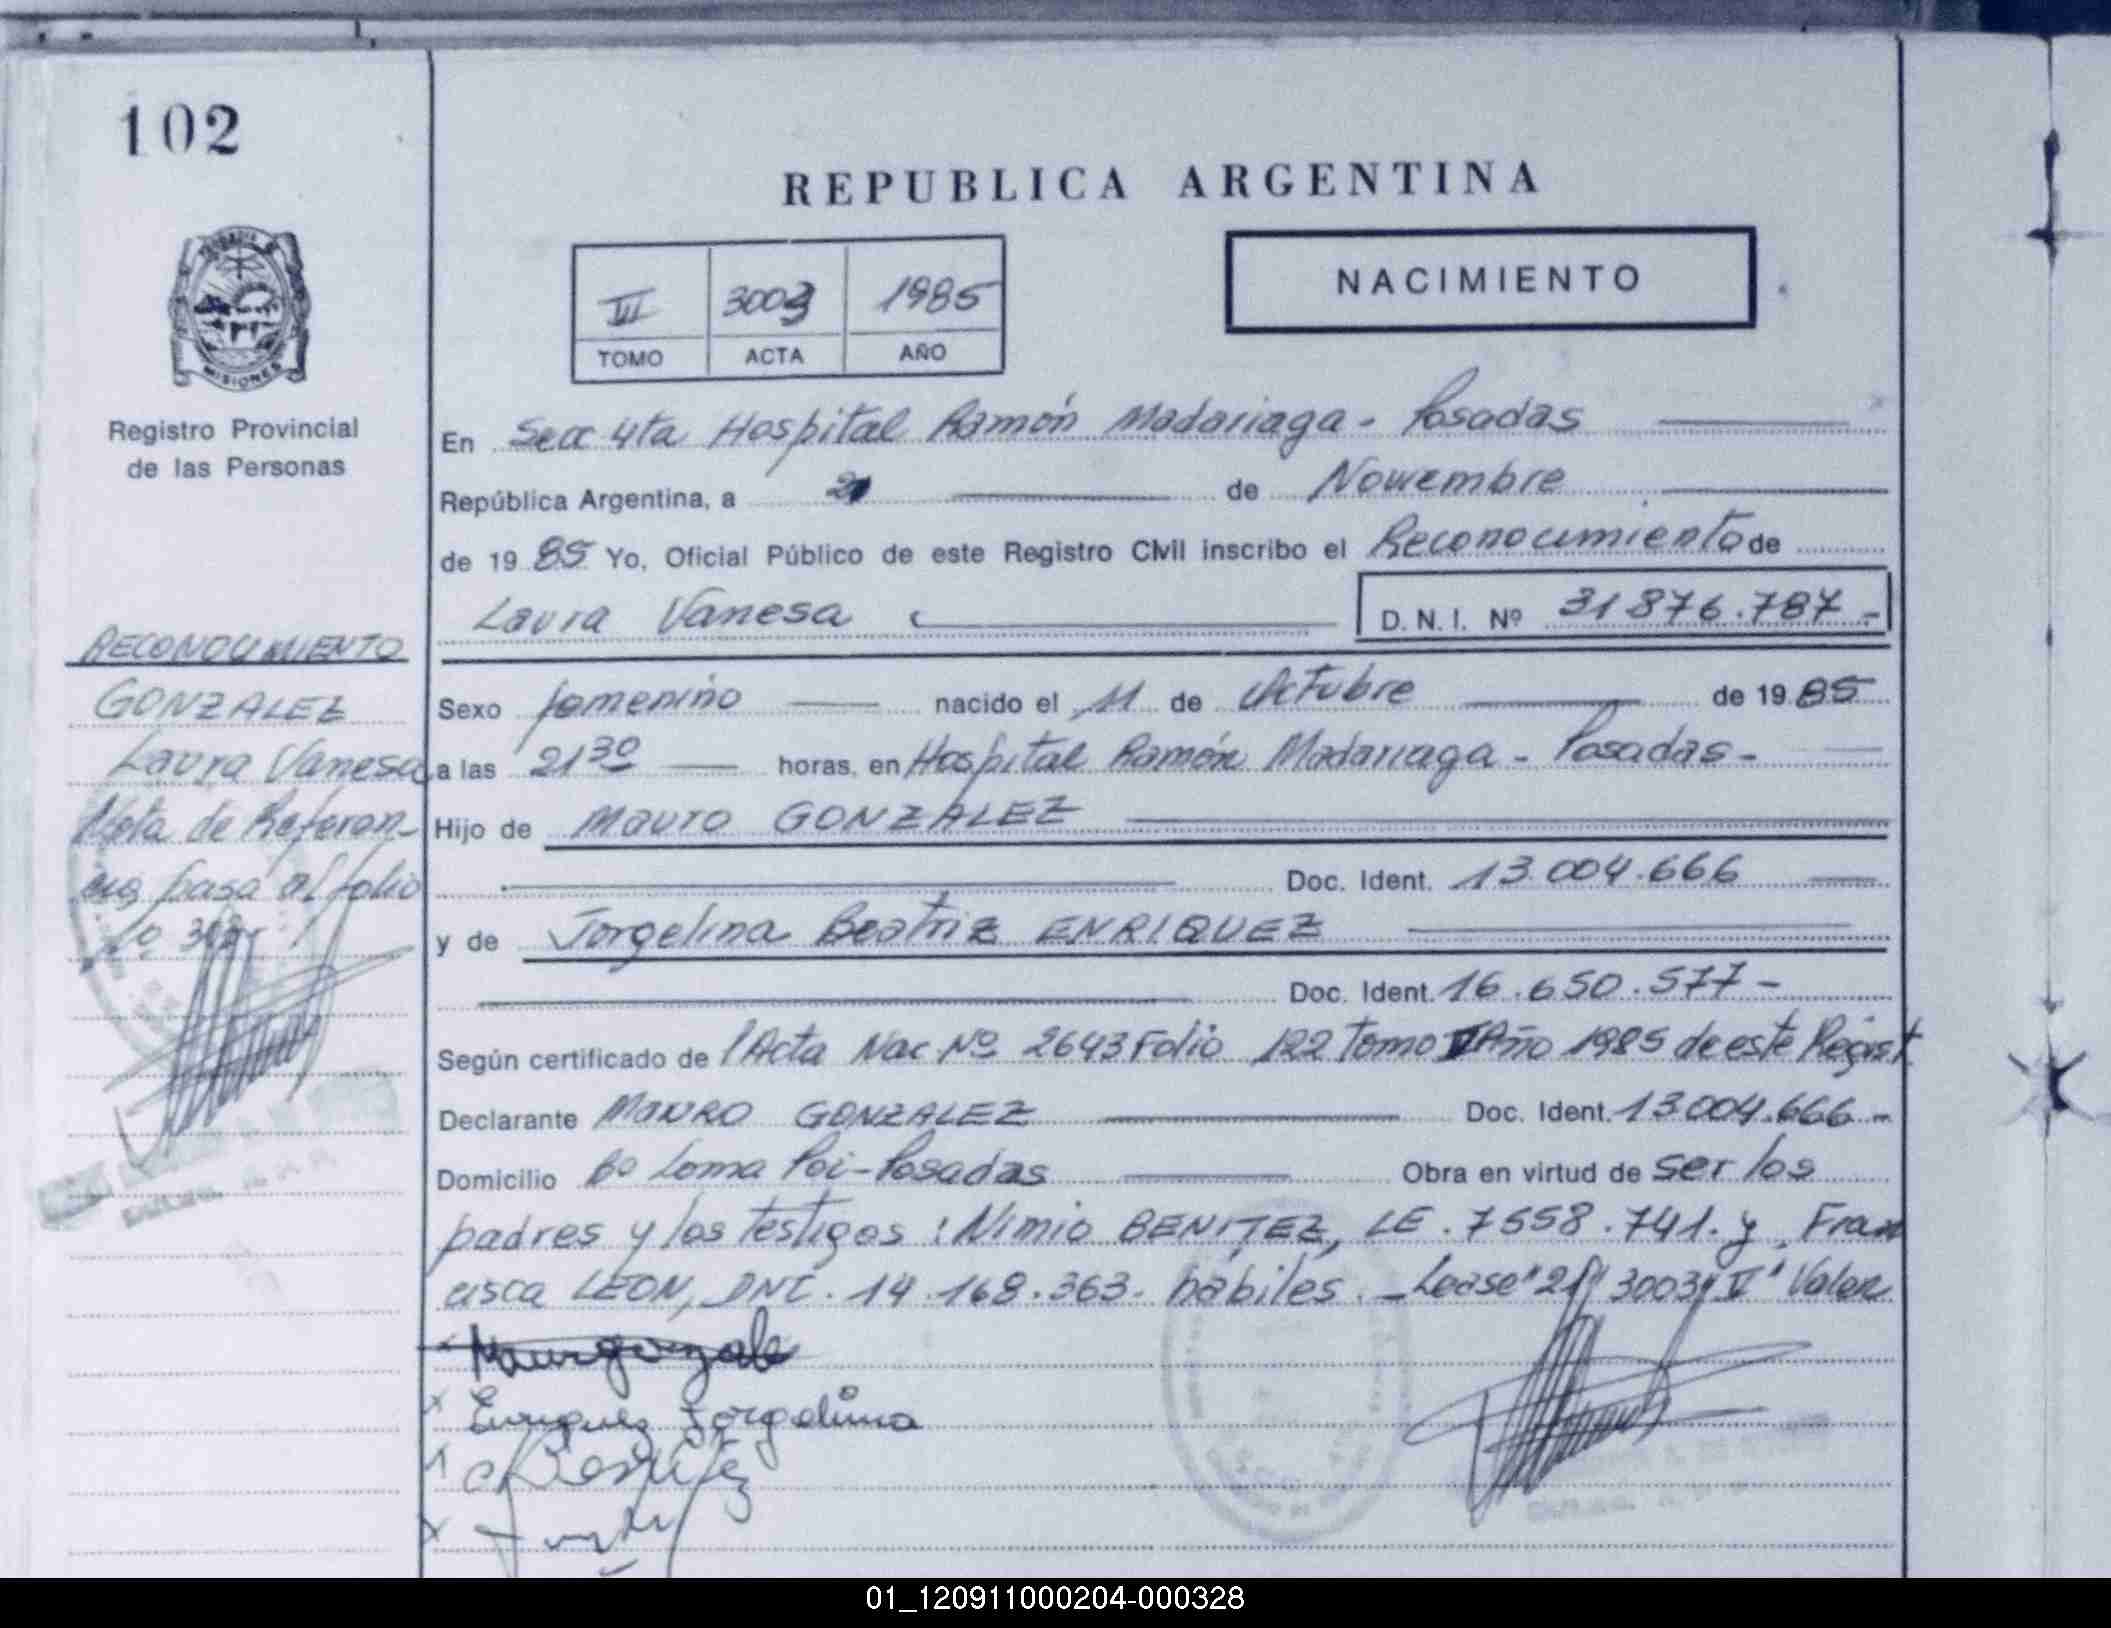 102
REPUBLICA ARGENTINA
III 3003 1985
TOMO ACTA AÑO
NACIMIENTO
MISIONES
Registro Provincial
de las Personas
En Secc 4ta Hospital Ramón Madariaga - Posadas
República Argentina, a 21 de Noviembre
de 19 85 Yo, Oficial Público de este Registro Civil inscribo el Reconocimiento de
Laura Vanesa D. N. I. Nº 31 876.787.-
RECONOCIMIENTO
GONZALEZ
Laura Vanesa
Nota de Referen-
cia pasa al folio
Nº
Sexo femenino nacido el 11 de Octubre de 19 85
a las 21 30 horas, en Hospital Ramón Madariaga - Posadas -
Hijo de Mauro GONZALEZ
Doc. Ident. 13.004.666
y de Jorgelina Beatriz ENRIQUEZ
Doc. Ident. 16.650.577 -
Según certificado de l Acta Nac Nº 2643 Folio 122 Tomo Año 1985 de este Regist
Declarante MAURO GONZALEZ Doc. Ident. 13.004.666 -
Domicilio Bº Loma Poi - Posadas Obra en virtud de ser los
padres y los testigos : Nimio BENITEZ, LE. 7558.741. y Fran
cisca LEON, DNI. 14.168.363. hábiles. - Lease "21" 3003" V" Valen
Enriquez Jorgelina
01_120911000204-000328